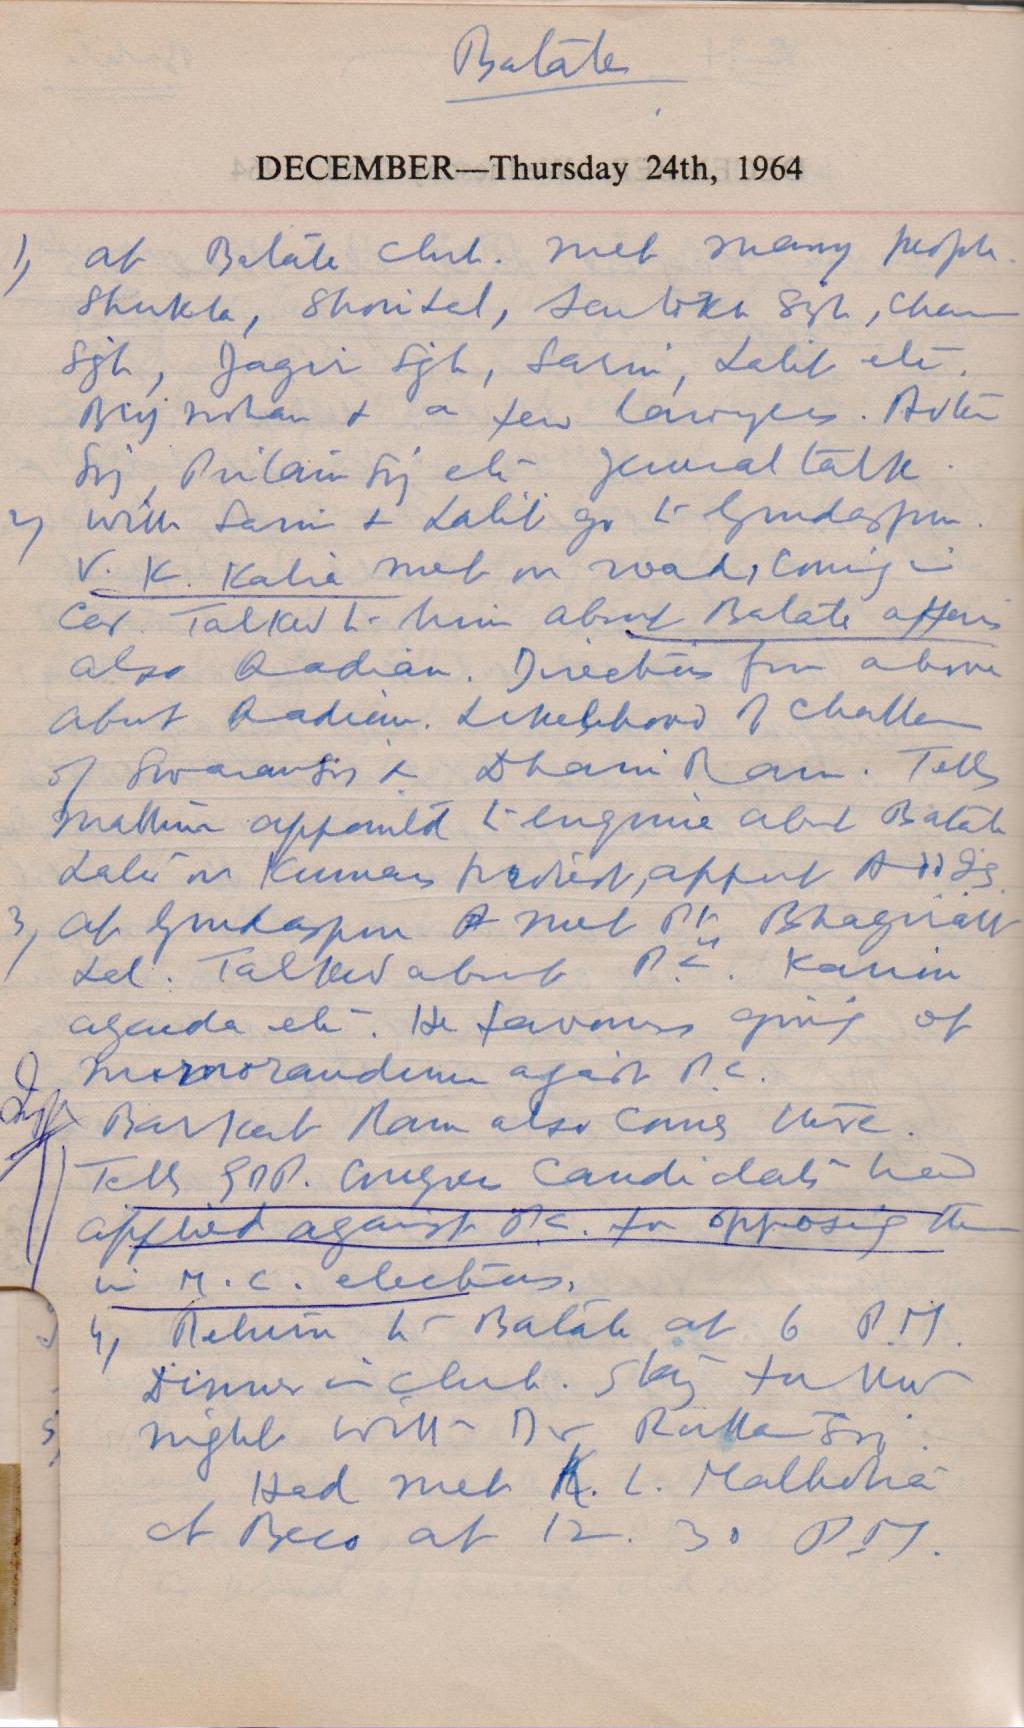 Batala
DECEMBER—Thursday 24th, 1964
1, at Batala Club. met many people.
Shukla, Shorilal, Santokh Sgh, Chan
Sgh, Jagir Sgh, Sarin, Lalit etc.
Brij mohan & a few lawyers.
Sgj, Pritam Sgj etc general talk.
2, with Sarin & Lalit go to Gurdaspur.
V. K. Kalia met on road, coming in
Car. Talked to him about Batala affairs
also Qadian. Directions from above
about Qadian. Likelihood of Challan
of Swaran Sgj & Dhani Ram. Tells
appointed to enquire about Batala
Later on appont
3, at Gurdaspur met Pt Bhagirath
Lal. Talked about P.C.
agenda etc. He favours giving of
memorandum against P.C.
Barkat Ram also comes there.
Tells GDP. Congress Candidates had
applied against P.C. for opposing them
in M.C. elections.
4, Return to Batala at 6 P.M.
Dinner in club. Stay for the
night with Dr
Had met K. L. Malhotra
at Beco at 12.30 P.M.